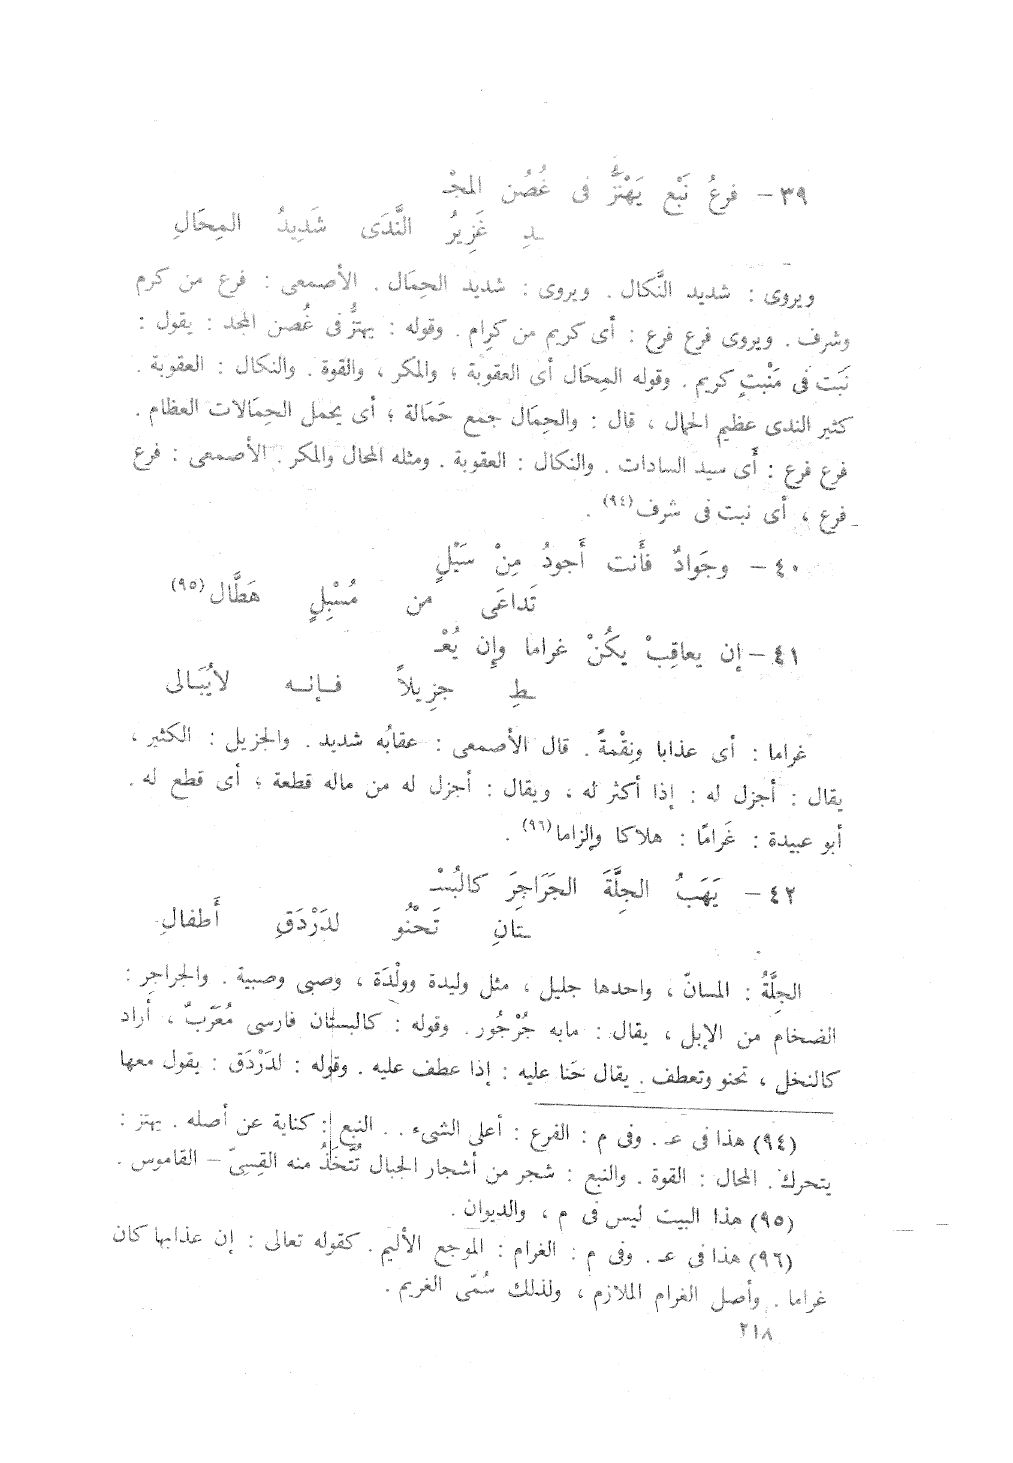 ٣٩ – فرعُ نَبْع يَهْتزُّ فى غُصُن المجْـ
ـدِ غَزِيرُ النَّدَى شَدِيدُ المِحَالِ
ويروى : شديد النَّكال . ويروى : شديد الحِمَال . الأصمعى : فرع من كرم
وشرف . ويروى فرع فرع : أى كريم من كرِام . وقوله : يهتزُّ فى غُصن المجد : يقول :
نَبَت فى مَنْبتٍ كريم . وقوله المِحَال أى العقوبة ؛ والمكر ، والقوة . والنكال : العقوبة .
كثير الندى عظيم الحمال ، قال : والحِمَال جمع حَمَالة ؛ أى يحمل الحِمَالات العظام .
فرع فرع : أَى سيد السادات . والنكال : العقوبة . ومثله المحال والمكر . الأصمعى : فرع
فرع ، أى نبت فى شرف(٩٤) .
٤٠ – وجَوادٌ فأَنت أَجودُ مِنْ سَيْلٍ
تَداعَى من مُسْبِلٍ هَطَّال(٩٥)
٤١ – إن يعاقِبْ يكُنْ غراما وإِن يُعْـ
ـطِ جزِيلاً فــإنــه لايُبَـالى
غراما : أى عذابا ونِقْمةً . قال الأصمعى : عقابُه شديد . والجزيل : الكثير ،
يقال : أجزل له : إذا أكثر له ، ويقال : أجزل له من ماله قطعة ؛ أى قطع له .
أبو عبيدة : غَرامًا : هلاكا وإلزاما(٩٦) .
٤٢ – يَهَبُ الجِلَّةَ الجَرَاجِرَ كالبُسْـ
ـتانِ تَحْنُو لدَرْدَقِ أَطفالِ
الجِلَّةُ : المسانّ ، واحدها جليل ، مثل وليدة وولْدَة ، وصبى وصبية . والجراجر :
الضخام من الإبل ، يقال : مابه جُرْجُور . وقوله : كالبستان فارسى مُعَرّبٌ ، أراد
كالنخل ، تحنو وتعطف . يقال حَنا عليه : إذا عطف عليه . وقوله : لدَرْدَق : يقول معها
(٩٤) هذا فى عـ . وفى م : الفرع : أعلى الشىء . . النبع : كناية عن أصله . يهتز :
يتحرك . المحال : القوة . والنبع : شجر من أشجار الجبال تُتَّخَذُ منه القِسِىّ – القاموس .
(٩٥) هذا البيت ليس فى م ، والديوان .
(٩٦) هذا فى عـ . وفى م : الغرام : الموجع الأليم . كقوله تعالى : إن عذابها كان
غراما . وأصل الغرام الملازم ، ولذلك سُمّى الغريم .
٢١٨